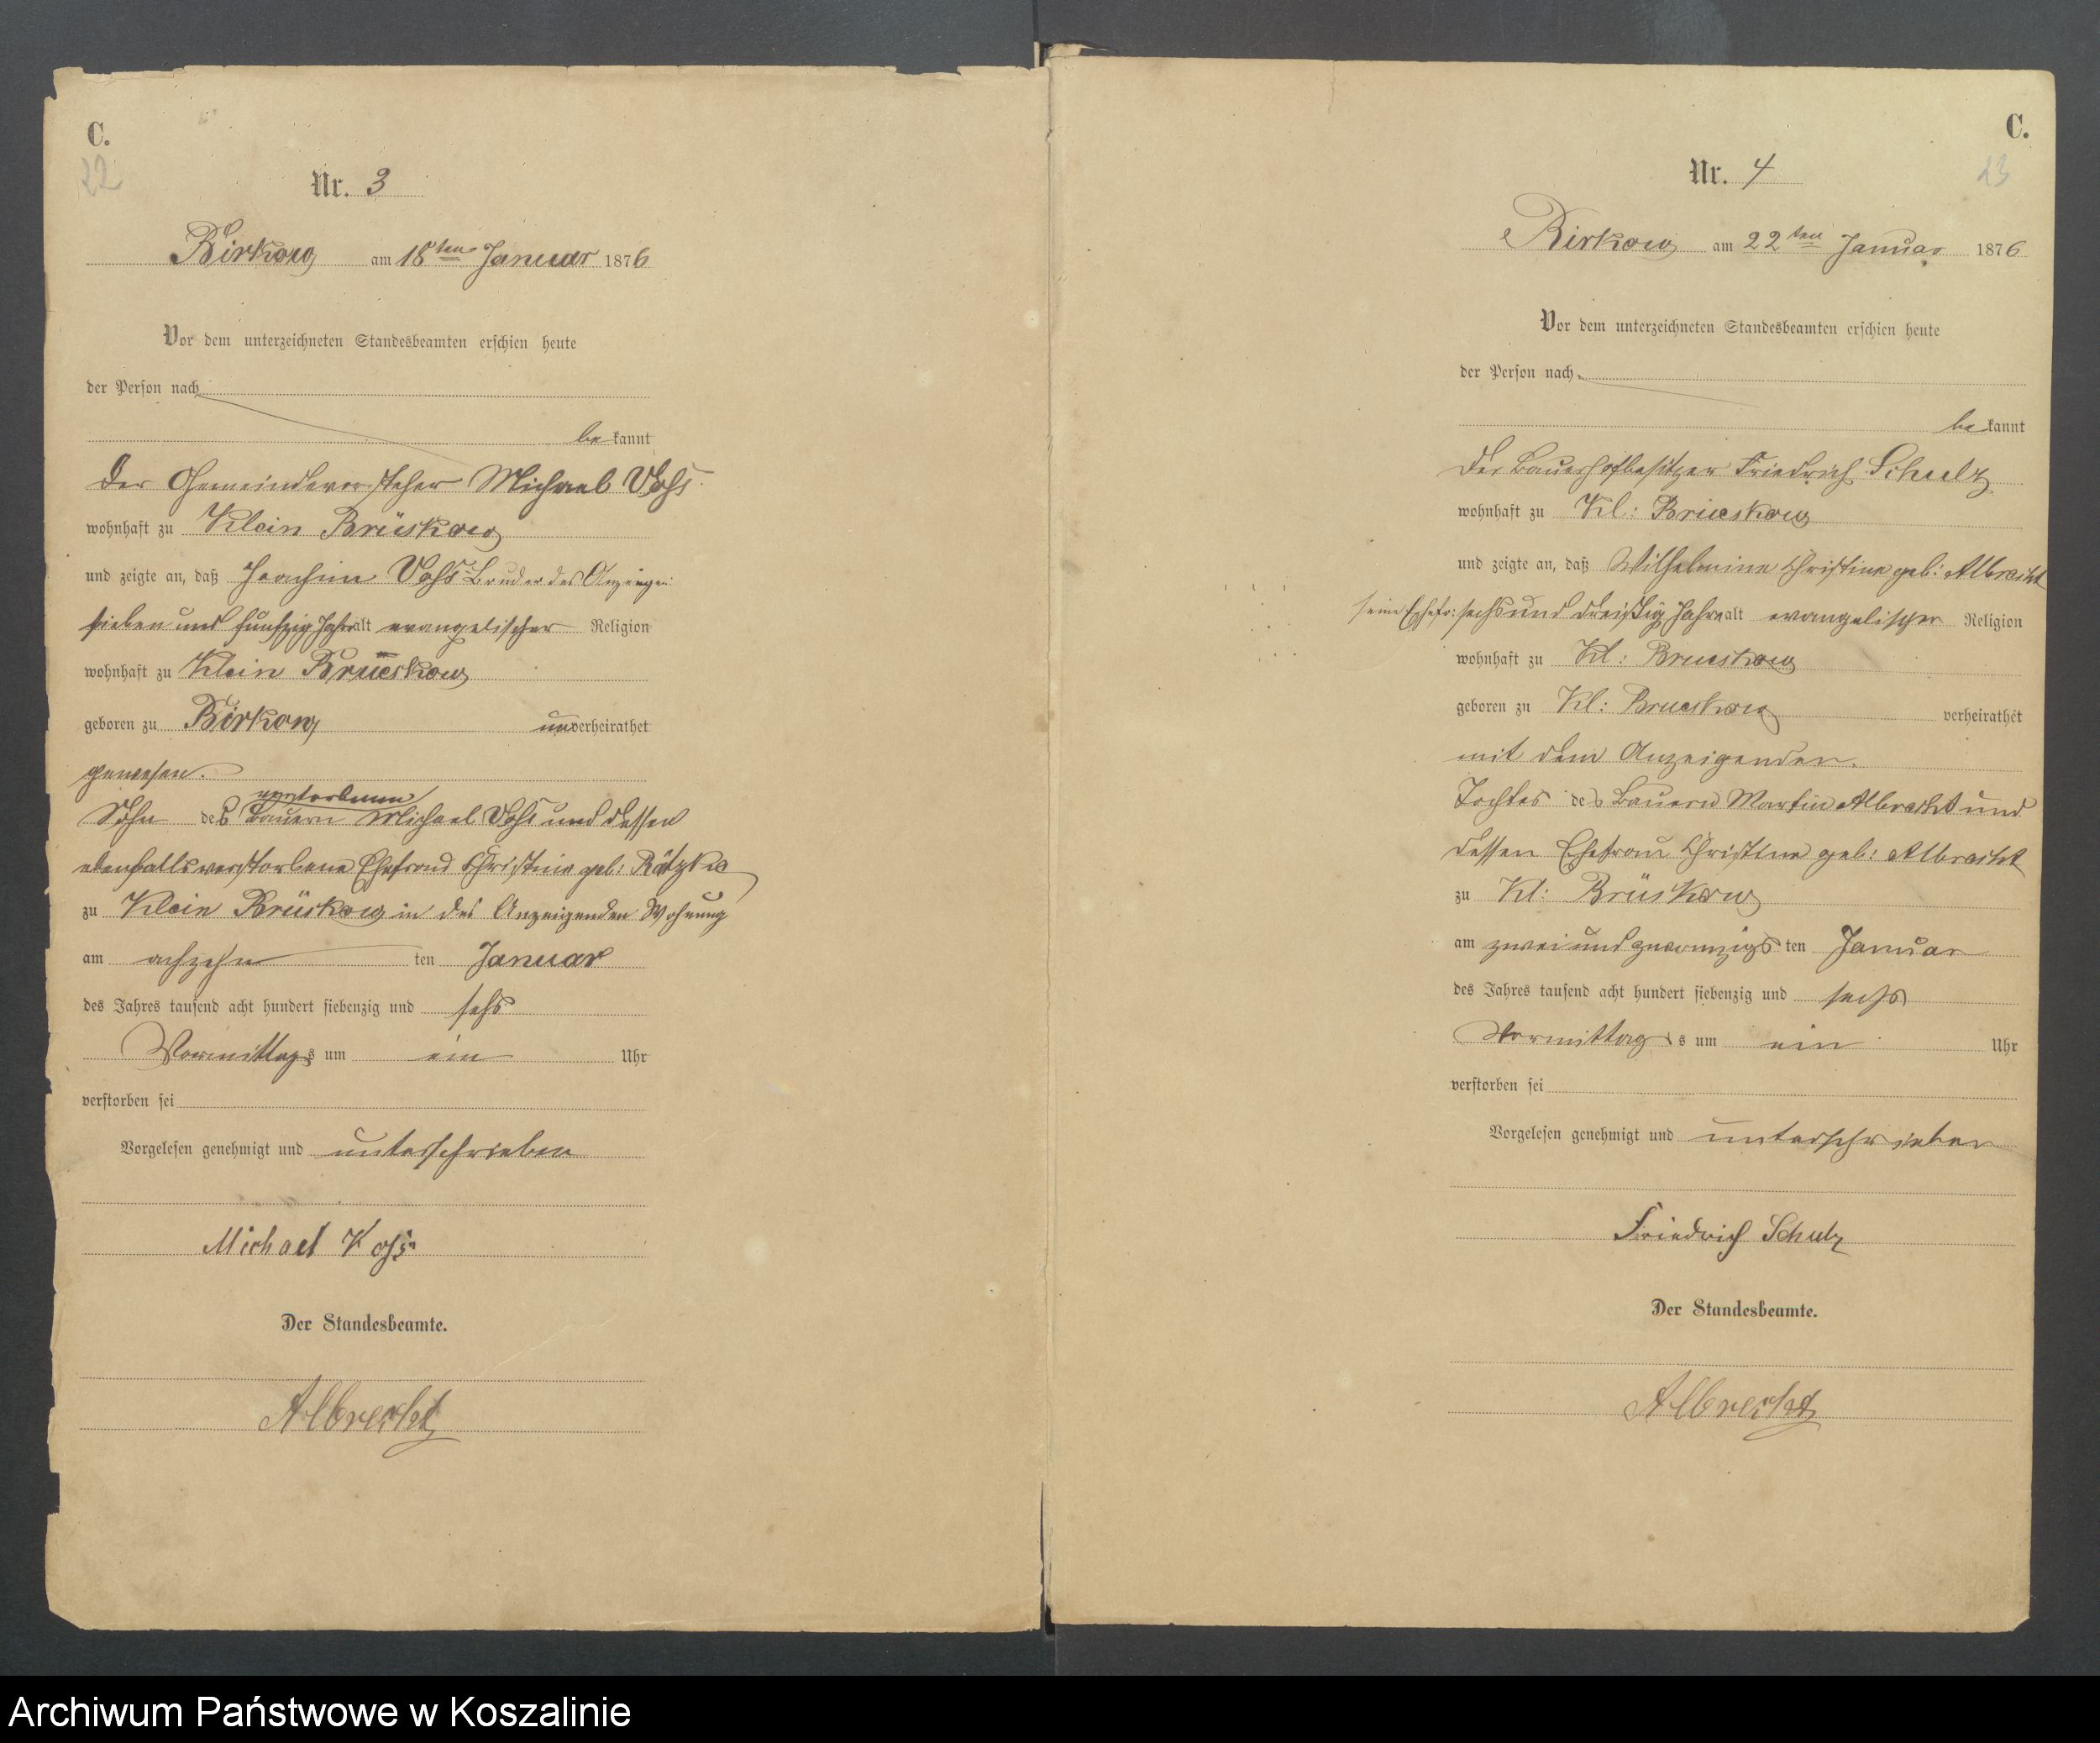 C.
22
Nr. 3
Birkow am 18ten Januar 1876
Vor dem unterzeichneten Standesbeamten erschien heute
der Person nach
bekannt
Der Gemeindevorsteher Michael Vohs
wohnhaft zu Klein Brüskow
und zeigte an, daß Joachim Vohs Bruder des Anzeigen:
sieben und funfzig Jahr alt evangelischer Religion
wohnhaft zu Klein Brueskow
geboren zu Birkow unverheirathet
gewesen.
verstorbenen
Sohn des Bauern Michael Vohs und dessen
ebenfalls verstorbene Ehefraud Christine geb: Rätzke
zu Klein Brüskow in des Anzeigenden Wohnung
am achzehn ten Januar
des Jahres tausend acht hundert siebenzig und sehs
Vormittags um ein Uhr
verstorben sei
Vorgelesen genehmigt und unterschrieben
Michael Vohs
Der Standesbeamte.
Albrecht
C.
23
Nr. 4
Birkow am 22ten Januar 1876
Vor dem unterzeichneten Standesbeamten erschien heute
der Person nach
bekannt
Der Bauerhofbesitzer Friedrich Schulz
wohnhaft zu Kl: Brueskow
und zeigte an, daß Wilhelmine Christine geb: Albrecht
seine Ehefr: sechs und dreißig Jahre alt evangelischer Religion
wohnhaft zu Kl: Brueskow
geboren zu Kl: Brueskow verheirathet
mit dem Anzeigenden.
Tochter des Bauern Martin Albrecht und
dessen Ehefrau Christine geb: Albrecht
zu Kl: Brüskow
am zwei und zwanzigs ten Januar
des Jahres tausend acht hundert siebenzig und sechs
Vormittag s um ein Uhr
verstorben sei
Vorgelesen genehmigt und unterschrieben
Friedrich Schulz
Der Standesbeamte.
Albrecht
Archiwum Państwowe w Koszalinie